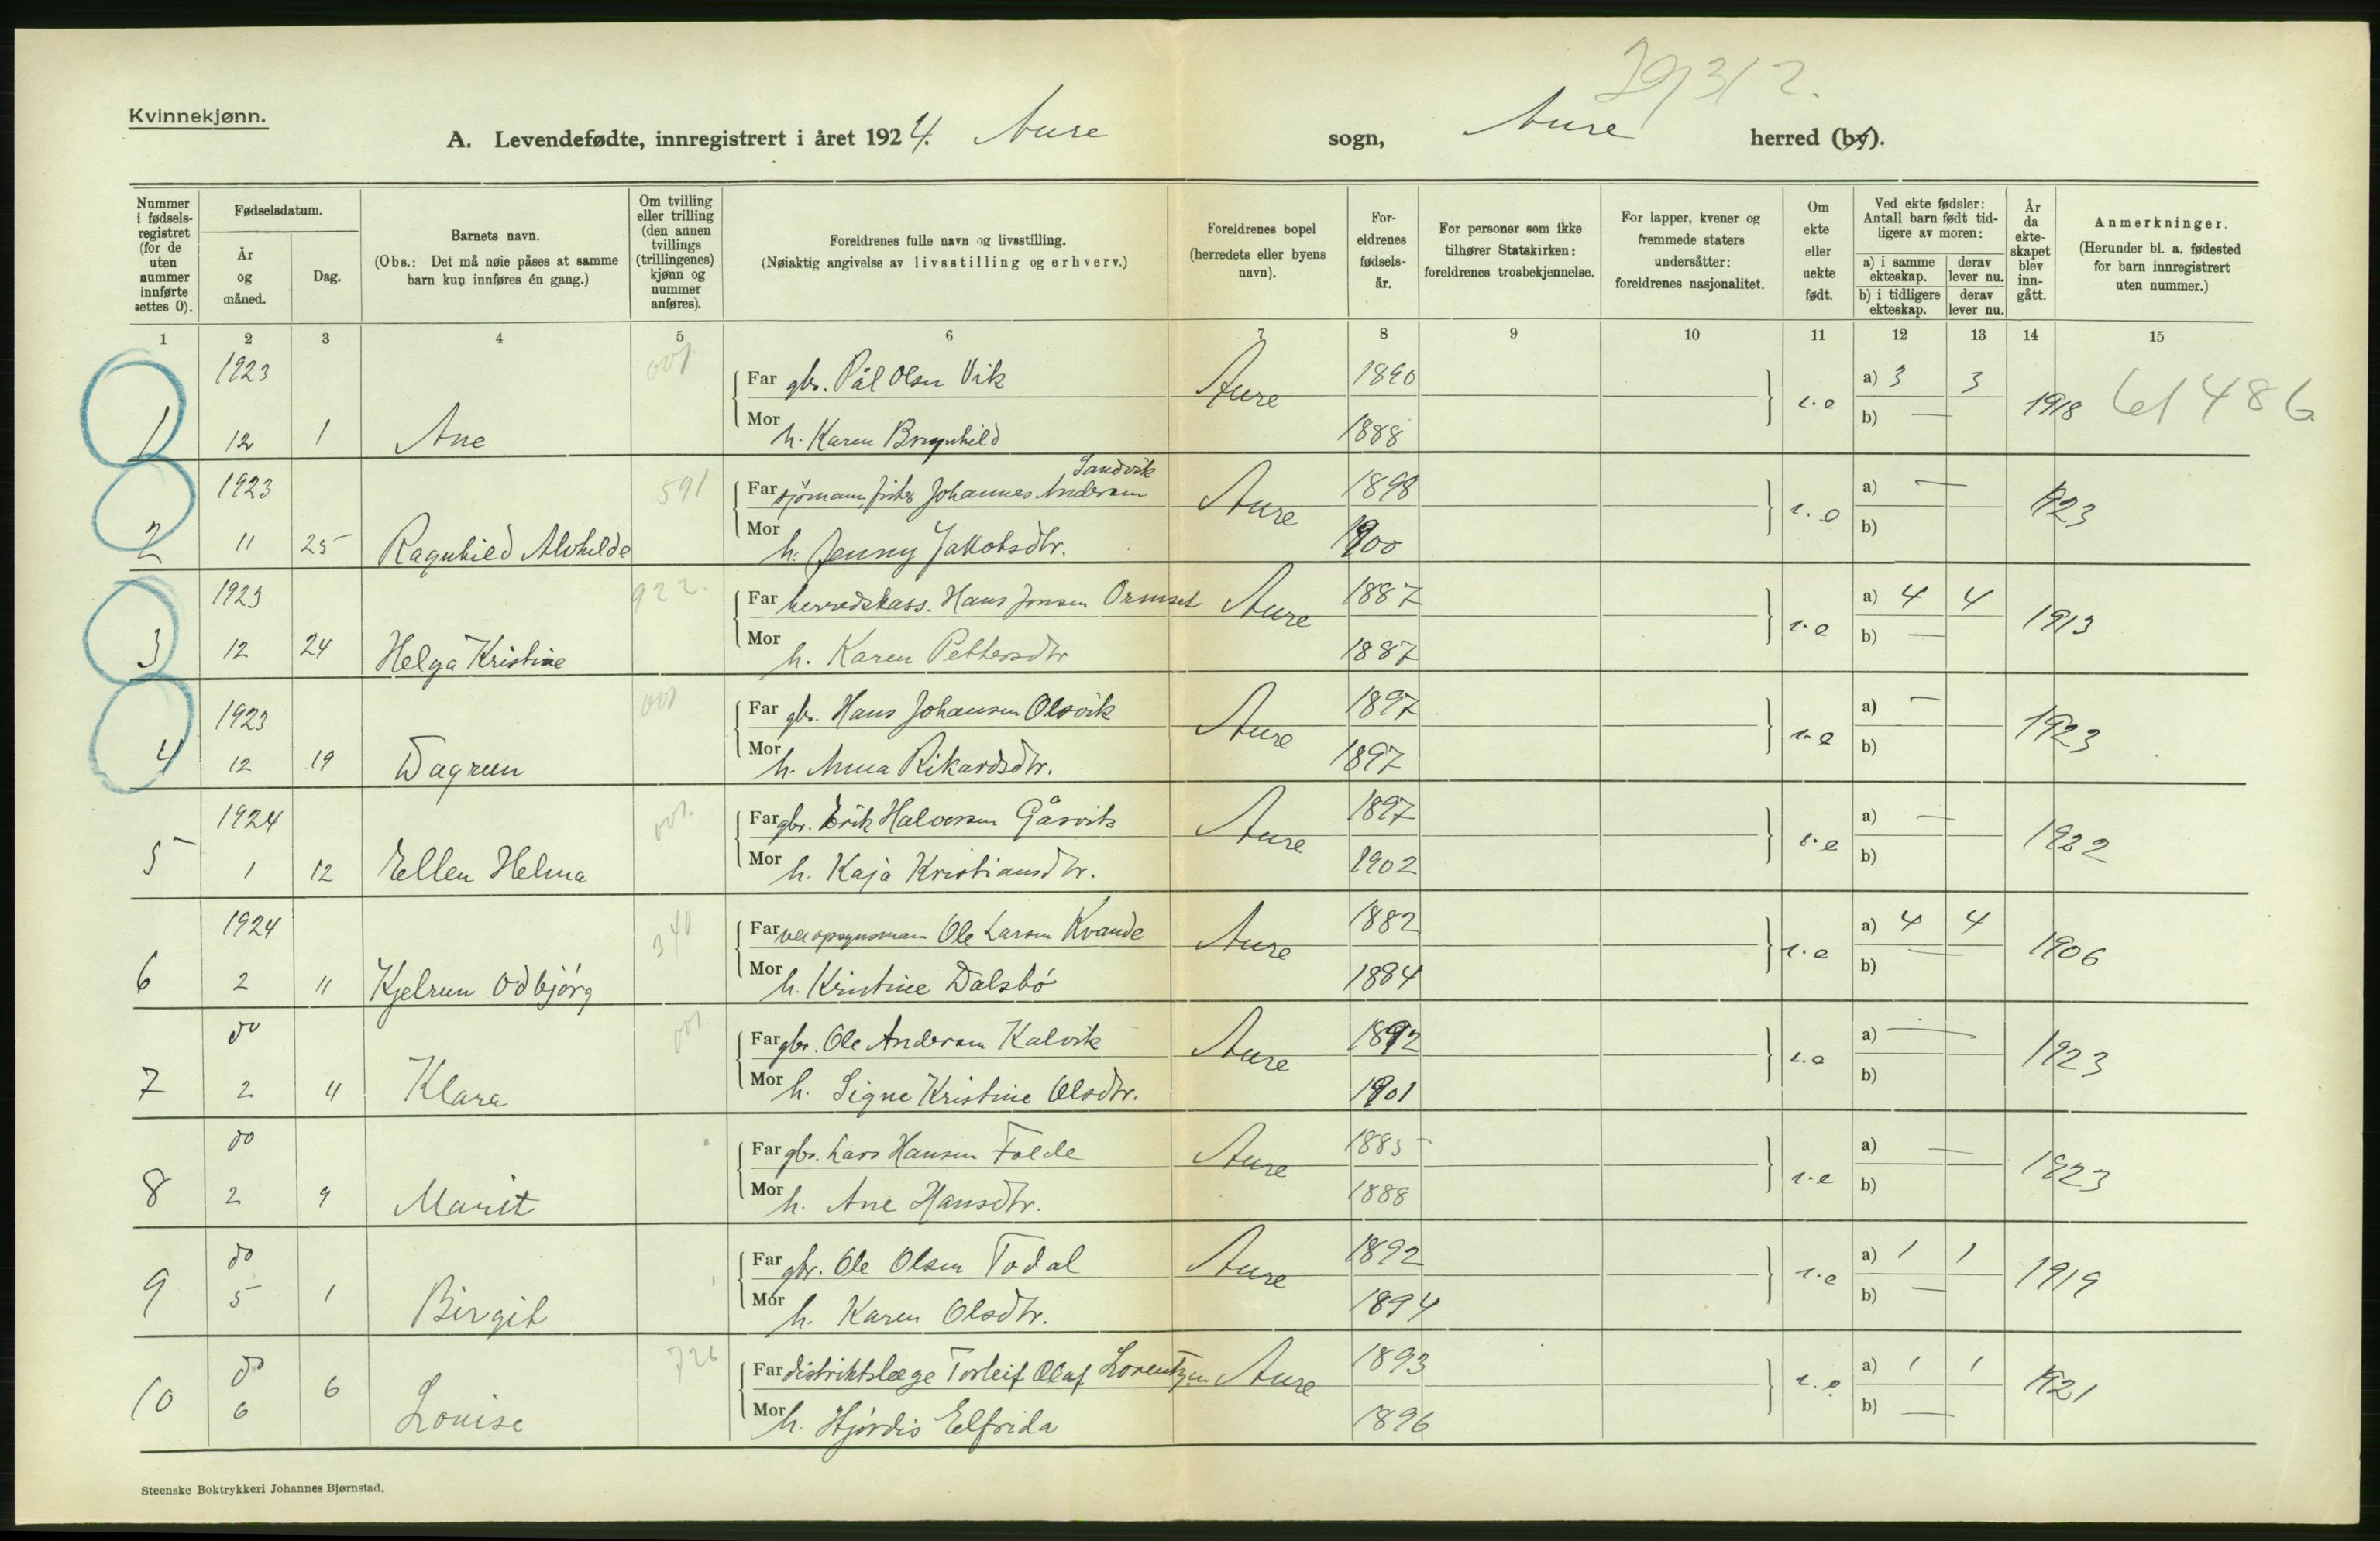 29/3/2.
Kvinnekjønn.
A. Levendefødte, innregistrert i året 1924. Aure sogn, Aure herred (by).
Nummer i fødsels-registret (for de uten nummer innførte settes 0).
Fødselsdatum.
År og måned.
Dag.
Barnets navn.
(Obs.: Det må nøie påses at samme barn kun innføres én gang.)
Om tvilling eller trilling (den annen tvillings (trillingenes) kjønn og nummer anføres).
Foreldrenes fulle navn og livsstilling.
(Nøiaktig angivelse av livsstilling og erhverv.)
Foreldrenes bopel (herredets eller byens navn).
For-eldrenes fødsels-år.
For personer som ikke tilhører Statskirken: foreldrenes trosbekjennelse.
For lapper, kvener og fremmede staters undersåtter: foreldrenes nasjonalitet.
Om ekte eller uekte født.
Ved ekte fødsler: Antall barn født tid-ligere av moren:
a) i samme ekteskap.
derav lever nu.
b) i tidligere ekteskap.
derav lever nu.
År da ekte-skapet blev inn-gått.
Anmerkninger.
(Herunder bl. a. fødested for barn innregistrert uten nummer.)
1 2 3 4 5 6 7 8 9 10 11 12 13 14 15
1923 001 Far gbr. Pål Olsen Vik Aure 1890 a) 3 3
1 12 1 Ane Mor h. Karen Brynhild 1888 i.e b) — 1918 61486
1923 591 Far sjömann, fisker Johannes Andersen Sandvik Aure 1898 a) —
2 11 25 Ragnhild Alvhilde Mor h. Jenny Jakobsdtr. 1900 i.e b) 1923
1923 922. Far herredskass. Hans Jonsen Ormset Aure 1887 a) 4 4
3 12 24 Helga Kristine Mor h. Karen Pettersdtr 1887 i.e b) — 1913
1923 001 Far gbr. Hans Johansen Olsvik Aure 1897 a) —
4 12 19 Dagrun Mor h. Anna Rikardsdtr. 1897 i.e b) 1923
1924 001. Far gbr. Erik Halvorsen Gåsvik Aure 1897 a) —
5 1 12 Ellen Helma Mor h. Kaja Kristiansdtr. 1902 i.e b) 1922
1924 340 Far veiopsynsmann Ole Larsen Kvande Aure 1882 a) 4 4
6 2 11 Kjelrun Odbjörg Mor h. Kristine Dalsbö 1884 i.e b) — 1906
do 001. Far gbr. Ole Andersen Kalvik Aure 1892 a) —
7 2 11 Klara Mor h. Signe Kristine Olsdtr. 1901 i.e b) 1923
do " Far gbr. Lars Hansen Folde Aure 1885 a) —
8 2 9 Marit Mor h. Ane Hansdtr. 1888 i.e b) 1923
do Far gbr. Ole Olsen Todal Aure 1892 a) 1 1
9 5 1 Birgit Mor h. Karen Olsdtr. 1894 i.e b) — 1919
do 726 Far distriktslæge Torleif Olaf Lorentzen Aure 1893 a) 1 1
10 6 6 Louise Mor h. Hjördis Elfrida 1896 i.e. b) — 1921
Steenske Boktrykkeri Johannes Bjørnstad.